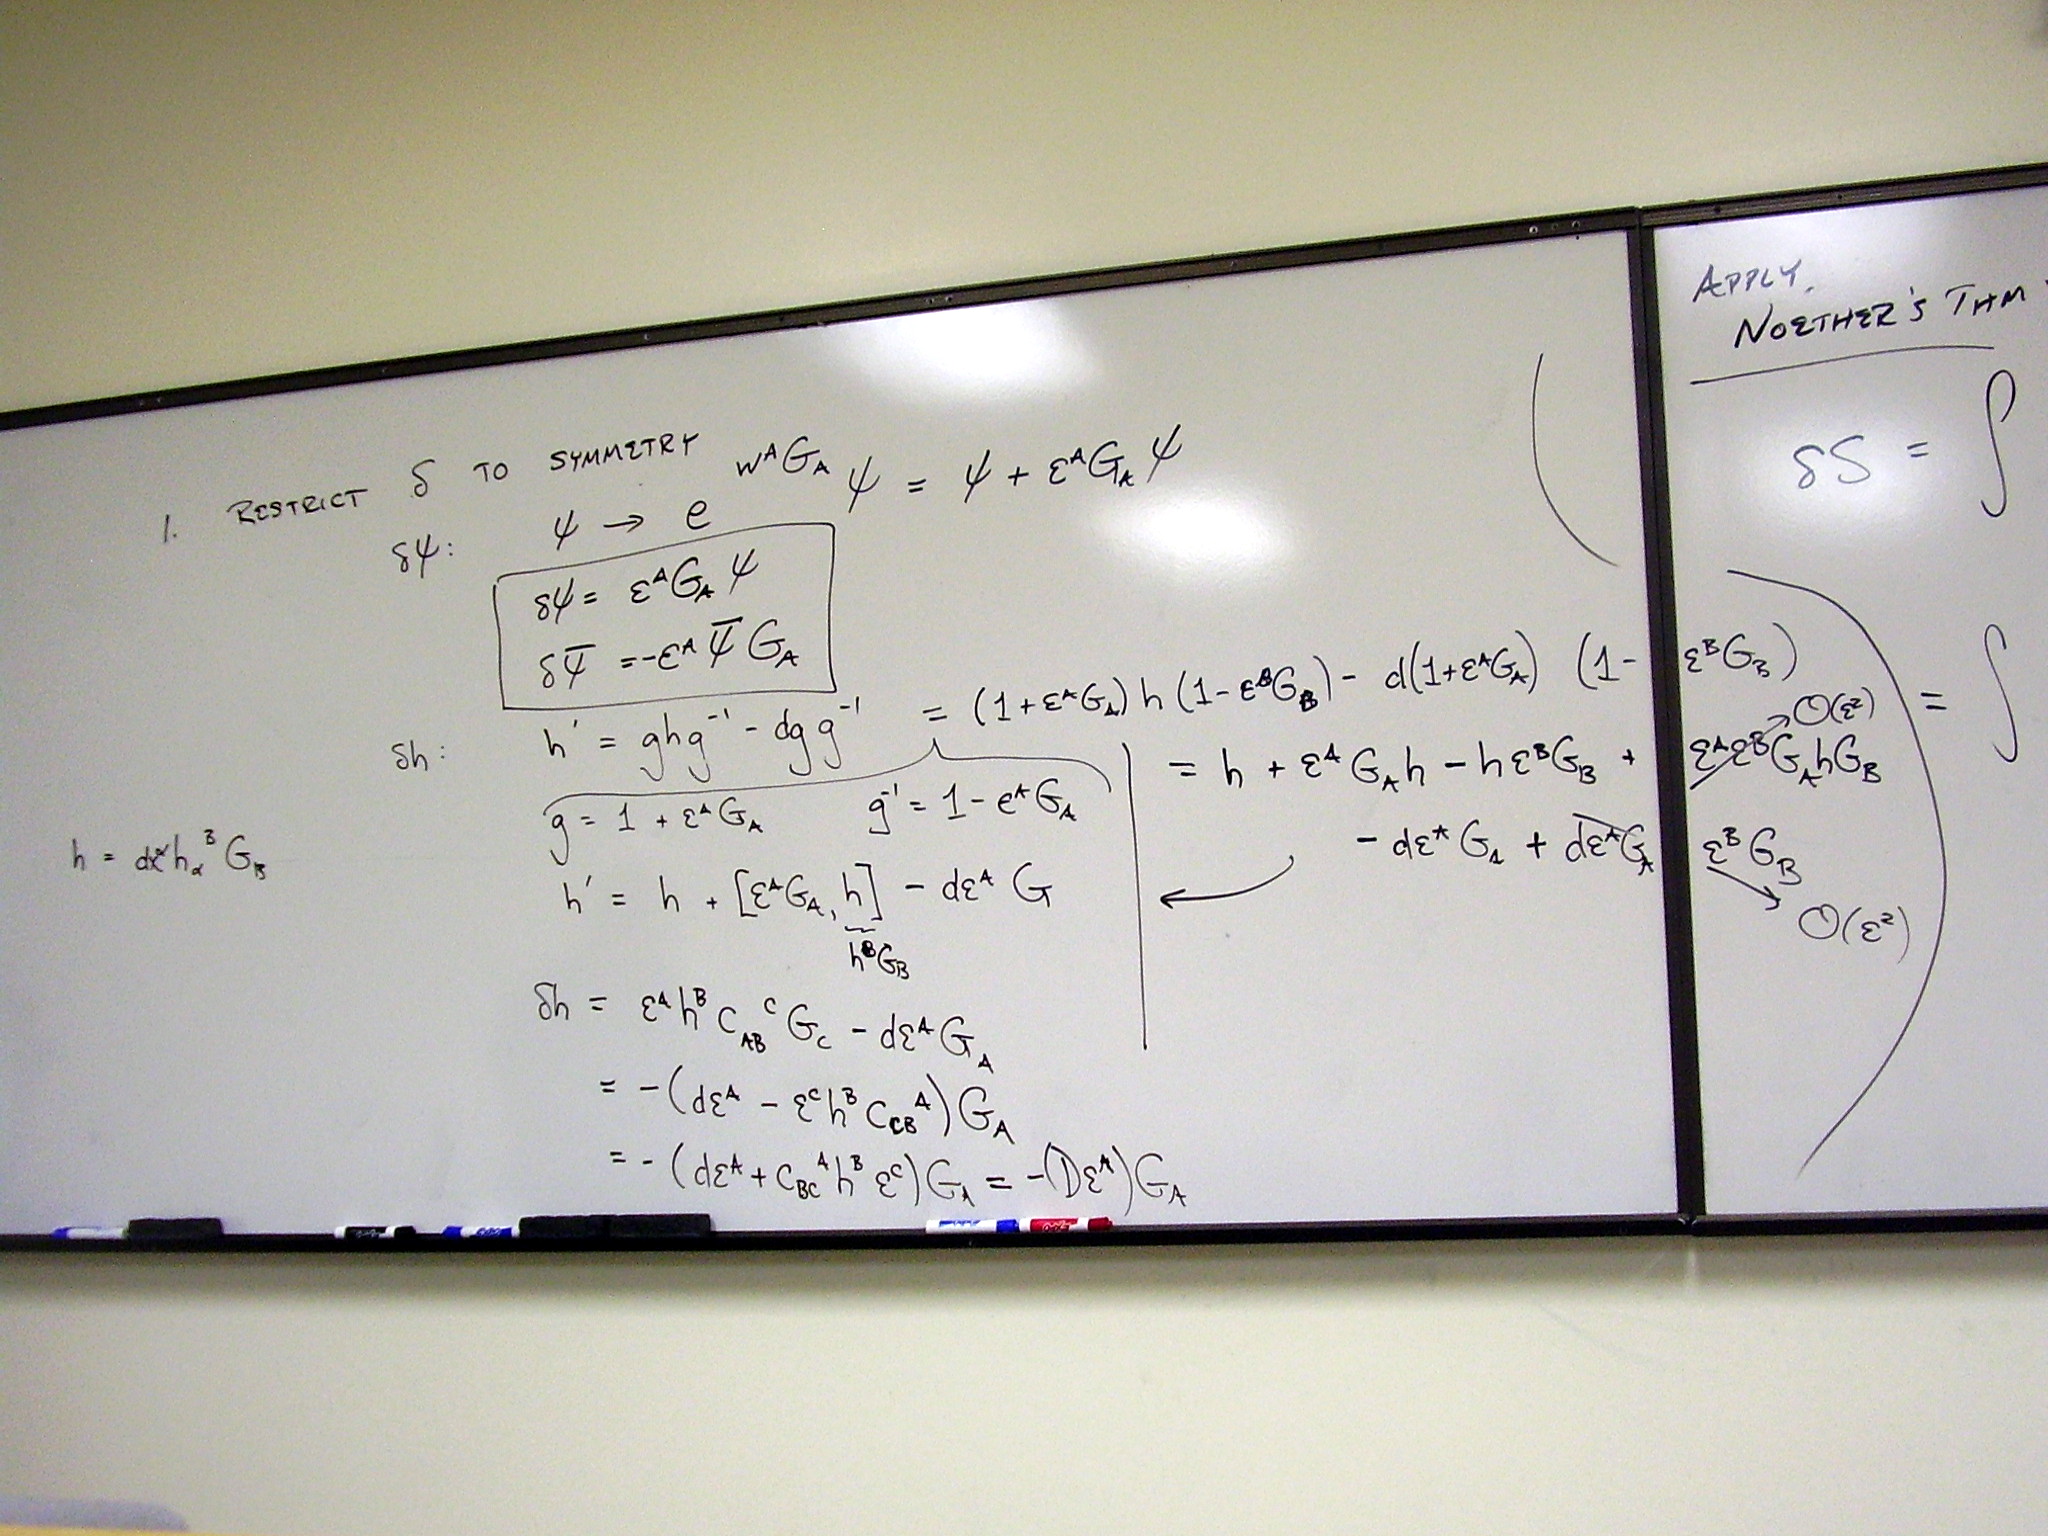 1. RESTRICT δ TO SYMMETRY
δψ: ψ → e^{w^A G_A} ψ = ψ + ε^A G_A ψ
δψ = ε^A G_A ψ
δψ̄ = -ε^A ψ̄ G_A
δh: h' = g h g^{-1} - dg g^{-1} = (1+ε^A G_A) h (1-ε^B G_B) - d(1+ε^A G_A) (1- ε^B G_B)
= h + ε^A G_A h - h ε^B G_B + ε^A ε^B G_A h G_B O(ε²)
g = 1 + ε^A G_A g^{-1} = 1 - e^A G_A
- dε^A G_A + dε^A G_A ε^B G_B
O(ε²)
h = dx^α h_α^B G_B
h' = h + [ε^A G_A, h] - dε^A G
h^B G_B
δh = ε^A h^B C_{AB}^C G_C - dε^A G_A
= -(dε^A - ε^C h^B C_{CB}^A) G_A
= -(dε^A + C_{BC}^A h^B ε^C) G_A = -(Dε^A) G_A
APPLY
NOETHER'S THM
δS = ∫
= ∫